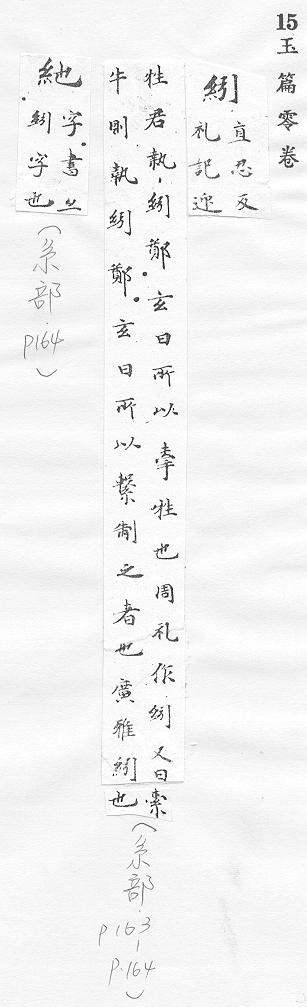 15 玉篇零卷
紖 直忍反
礼記迎
牲君執紖鄭玄曰所以牽牲也周礼作紖又曰
牛則執紖鄭玄曰所以繫制之者也廣雅紖
索
也
(糸部 p163-p.164)
紖 字書亦
紖字也
(糸部 p164)